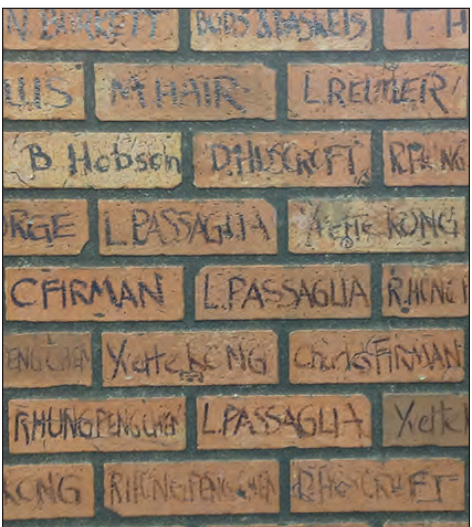 N BURNETT BUDS & BASKETS T H
UIS M HAIR L.REUTLER
B Hobson D.HUSCROFT R.HUNG
ORGE L.PASSAGLIA Yvette KONG
C FIRMAN L.PASSAGLIA R.HUNG
PENG CHEN Yvette KONG Charles FIRMAN
R HUNG PENG CHEN L.PASSAGLIA Yvette
KONG R HUNG PENG CHEN D.HUSCROFT